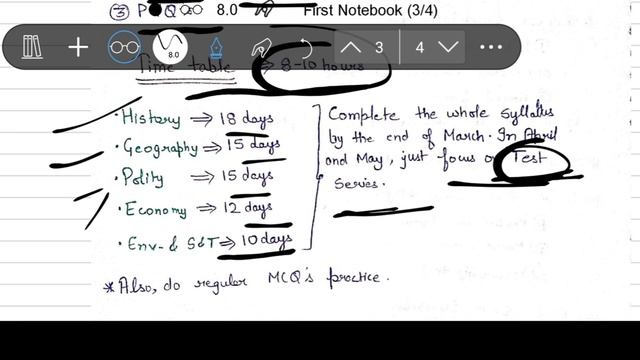 ③ P Q 8.0 First Notebook (3/4)
8.0 3 4
Time table ⇒ 8-10 hours
• History ⇒ 18 days
• Geography ⇒ 15 days
• Polity ⇒ 15 days
• Economy ⇒ 12 days
• Env- & S&T ⇒ 10 days
Complete the whole syllabus
by the end of March. In April
and May, just focus on Test
Series.
*Also, do regular MCQ's practice.